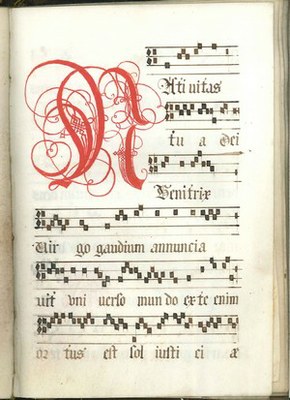 Nati nitas
tu a Dei
Genitrix
Vir go gaudium annuncia
uit vni uerso mun do ex te enim
or tus est sol iusti ci æ